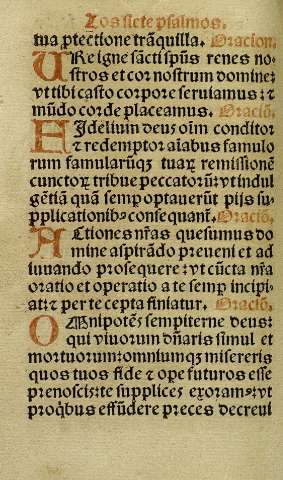 Los siete psalmos.
tua ꝓtectione trãquilla. Oracion.
URe igne sãcti spũs renes no-
stros et cor nostrum domine: 
vt tibi casto corpore seruiamus: ⁊
mũdo corde placeamus. Oraciõ.
FIdelium deus oĩm conditor
⁊ redemptor aĩabus famulo
rum famularũqꝫ tuaꝝ remissionẽ
cunctoꝝ tribue peccatorũ: vt indul
gẽtiã quã semp optauerũt pijs su-
pplicationibꝰ consequant̃. Oraciõ.
ACtiones nr̃as quesumus do
mine aspirãdo preueni et ad
iuuando prosequere: vt cũcta nr̃a
oratio et operatio a te semp incipi
at: ⁊ per te cepta finiatur. Oraciõ.
OMnipotẽs sempiterne deus:
qui viuorum dñaris simul et
mortuorum: omniumqꝫ misereris
quos tuos fide ⁊ oꝑe futuros esse
prenoscis: te supplices exoramꝰ: vt
pro q̃bus effũdere preces decreui